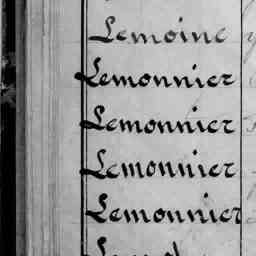 Lemoine
Lemonnier
Lemonnier
Lemonnier
Lemonnier